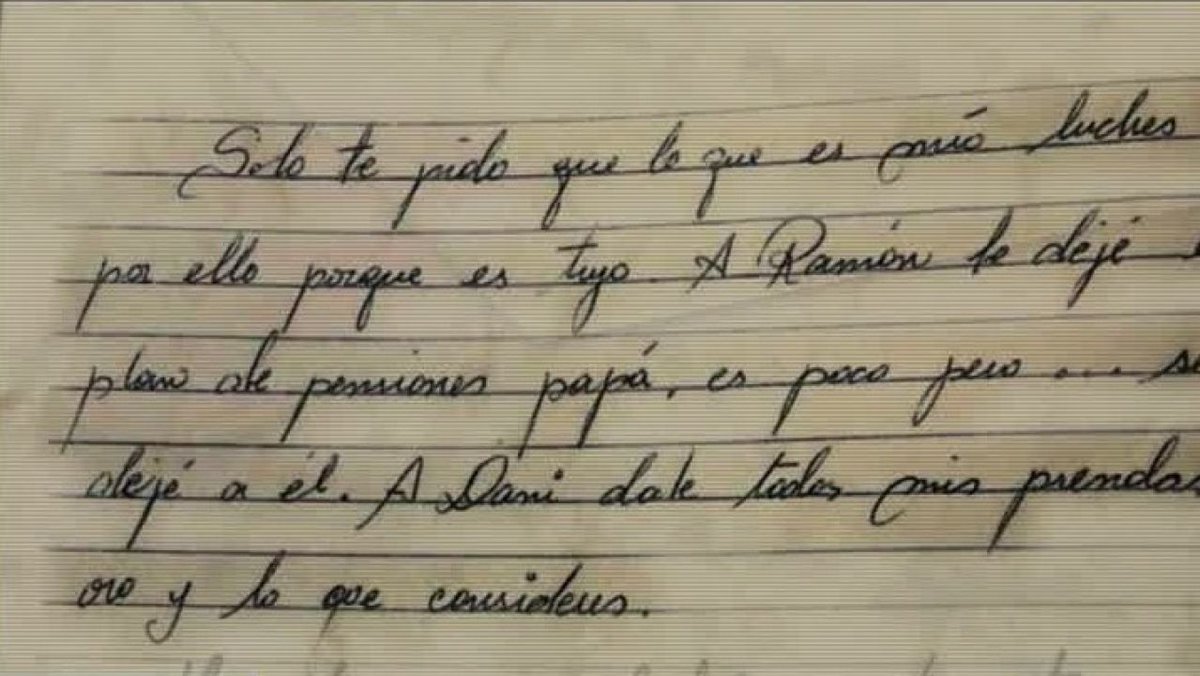 Solo te pido que lo que es mío luches
por ello porque es tuyo. A Ramón le dejé
plan de pensiones papá, es poco pero ... se
dejé a él. A Dani dale todas mis prendas
oro y lo que consideres.